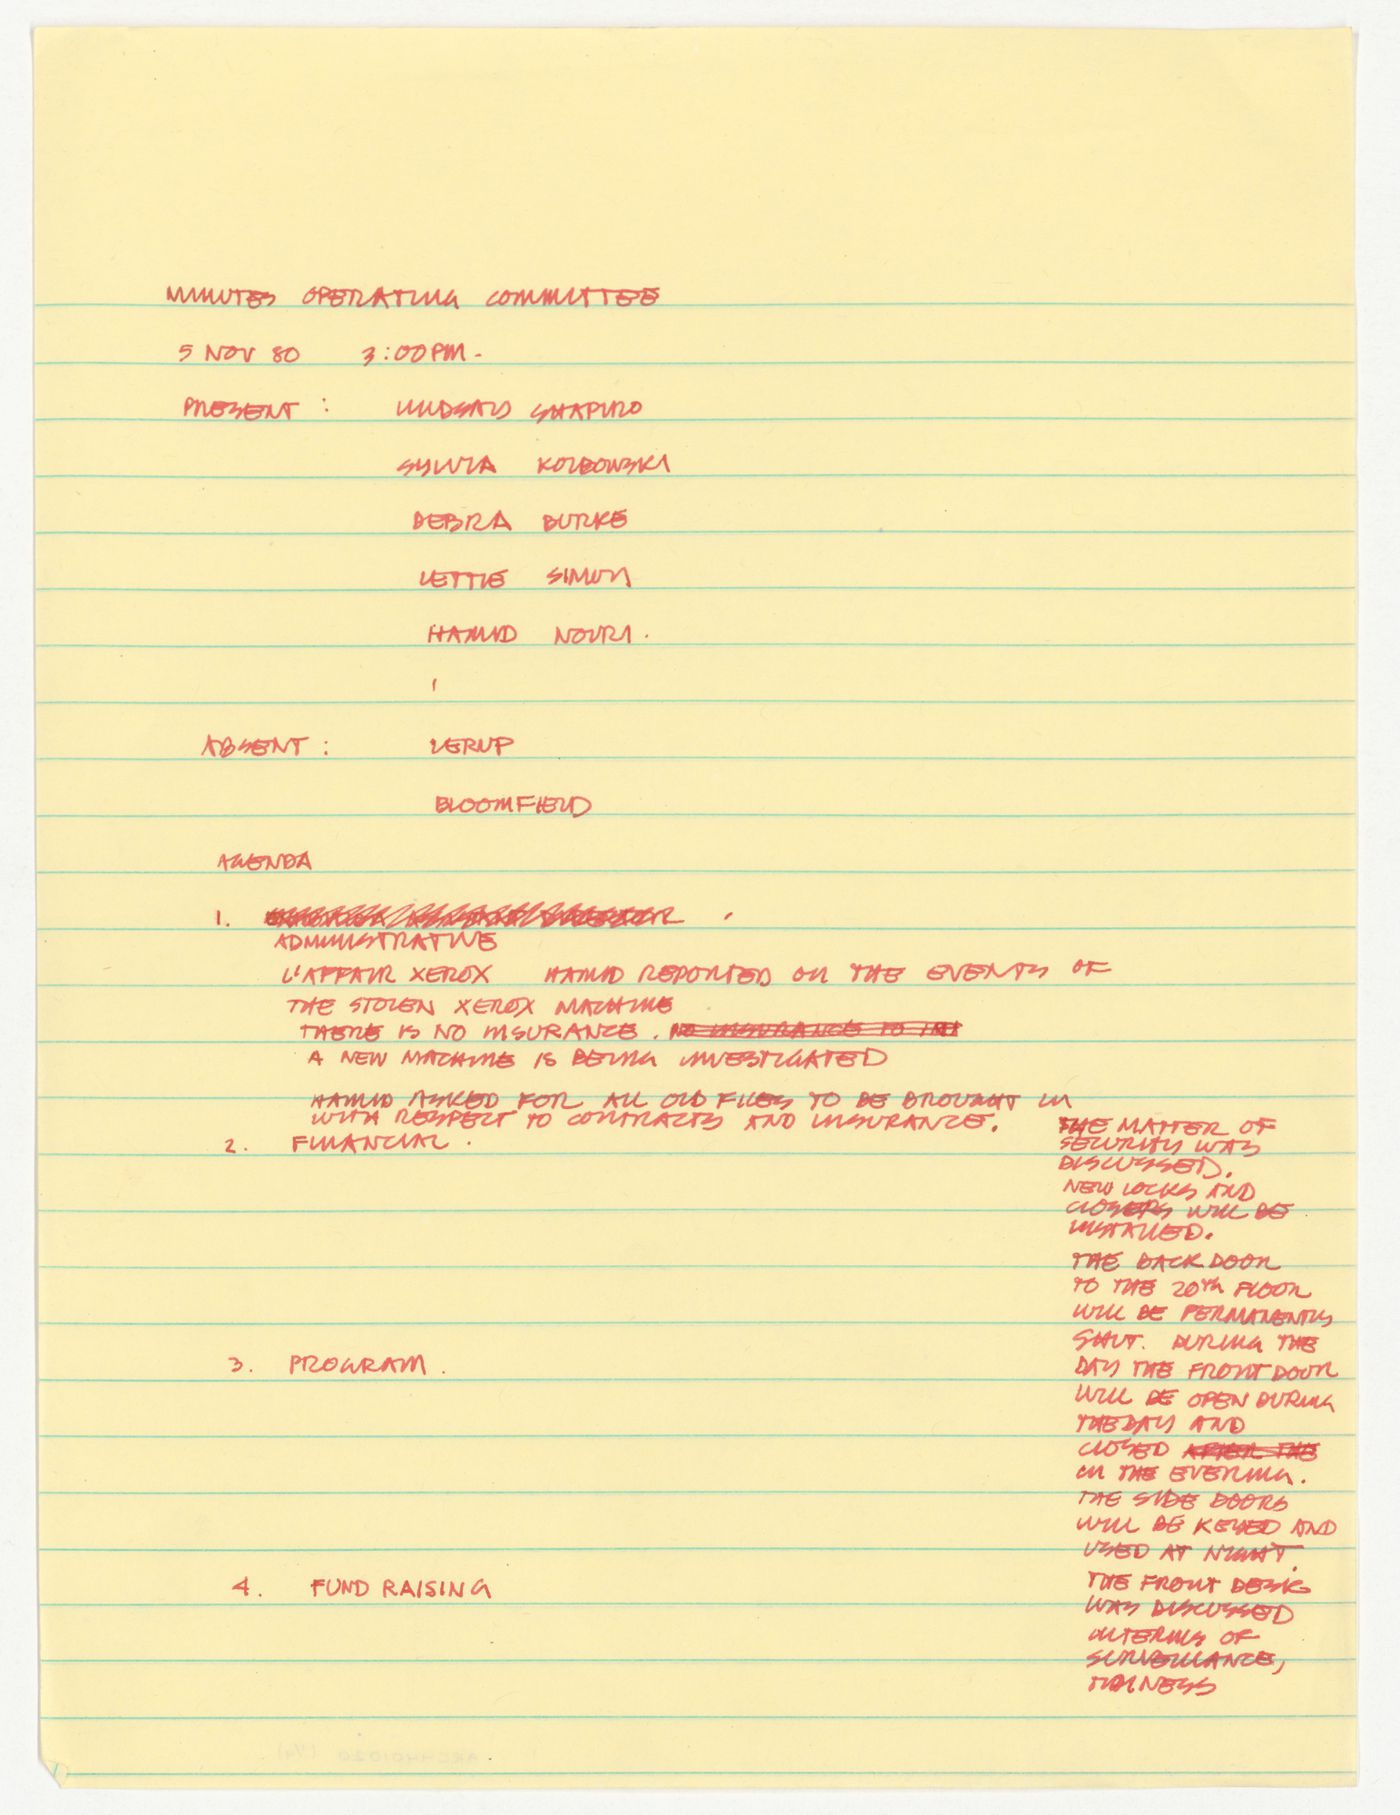 MINUTES OPERATING COMMITTEE
5 NOV 80 3:00 PM.
PRESENT : LINDSAY SHAPIRO
SYLVIA KOLBOWSKI
DEBRA BURKE
LETTIE SIMON
HAMID NOURI.
ABSENT : LERUP
BLOOMFIELD
AGENDA
1.
ADMINISTRATIVE
L'AFFAIR XEROX HAMID REPORTED ON THE EVENTS OF
THE STOLEN XEROX MACHINE
THERE IS NO INSURANCE. NO INSURANCE TO
A NEW MACHINE IS BEING INVESTIGATED
HAMID ASKED FOR ALL OLD FILES TO BE BROUGHT IN
WITH RESPECT TO CONTRACTS AND INSURANCE.
2. FINANCIAL.
THE MATTER OF
SECURITY WAS
DISCUSSED.
NEW LOCKS AND
CLOSERS WILL BE
INSTALLED.
THE BACK DOOR
TO THE 20th FLOOR
WILL BE PERMANENTLY
SHUT. DURING THE
DAY THE FRONT DOOR
WILL BE OPEN DURING
THE DAY AND
CLOSED AFTER THE
IN THE EVENING.
THE SIDE DOORS
WILL BE KEYED AND
USED AT NIGHT.
THE FRONT DESK
WAS DISCUSSED
IN TERMS OF
SURVEILLANCE,
3. PROGRAM.
4. FUND RAISING